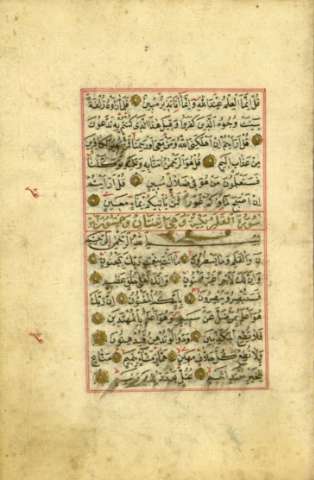 قُلْ اِنَّمَا الْعِلْمُ عِنْدَ اللّٰهِ وَاِنَّمَا اَنَا نَذِيرٌ مُبِينٌ فَلَمَّا رَاَوْهُ زُلْفَةً
سِيئَتْ وُجُوهُ الَّذِينَ كَفَرُوا وَقِيلَ هٰذَا الَّذِى كُنْتُمْ بِهِ تَدَّعُونَ
قُلْ اَرَاَيْتُمْ اِنْ اَهْلَكَنِىَ اللّٰهُ وَمَنْ مَعِىَ اَوْ رَحِمَنَا فَمَنْ يُجِيرُ الْكَافِرِينَ
مِنْ عَذَابٍ اَلِيمٍ قُلْ هُوَ الرَّحْمٰنُ اٰمَنَّا بِهِ وَعَلَيْهِ تَوَكَّلْنَا
فَسَتَعْلَمُونَ مَنْ هُوَ فِى ضَلَالٍ مُبِينٍ قُلْ اَرَاَيْتُمْ
اِنْ اَصْبَحَ مَاؤُكُمْ غَوْرًا فَمَنْ يَاْتِيكُمْ بِمَاءٍ مَعِينٍ
سورة القلم مكية وهى اثنتان وخمسون
بسم الله الرحمن الرحيم
نٓ وَالْقَلَمِ وَمَا يَسْطُرُونَ مَا اَنْتَ بِنِعْمَةِ رَبِّكَ بِمَجْنُونٍ
وَاِنَّ لَكَ لَاَجْرًا غَيْرَ مَمْنُونٍ وَاِنَّكَ لَعَلٰى خُلُقٍ عَظِيمٍ
فَسَتُبْصِرُ وَيُبْصِرُونَ بِاَيِّكُمُ الْمَفْتُونُ اِنَّ رَبَّكَ
هُوَ اَعْلَمُ بِمَنْ ضَلَّ عَنْ سَبِيلِهِ وَهُوَ اَعْلَمُ بِالْمُهْتَدِينَ
فَلَا تُطِعِ الْمُكَذِّبِينَ وَدُّوا لَوْ تُدْهِنُ فَيُدْهِنُونَ
وَلَا تُطِعْ كُلَّ حَلَّافٍ مَهِينٍ هَمَّازٍ مَشَّاءٍ بِنَمِيمٍ مَنَّاعٍ
لِلْخَيْرِ مُعْتَدٍ اَثِيمٍ عُتُلٍّ بَعْدَ ذٰلِكَ زَنِيمٍ